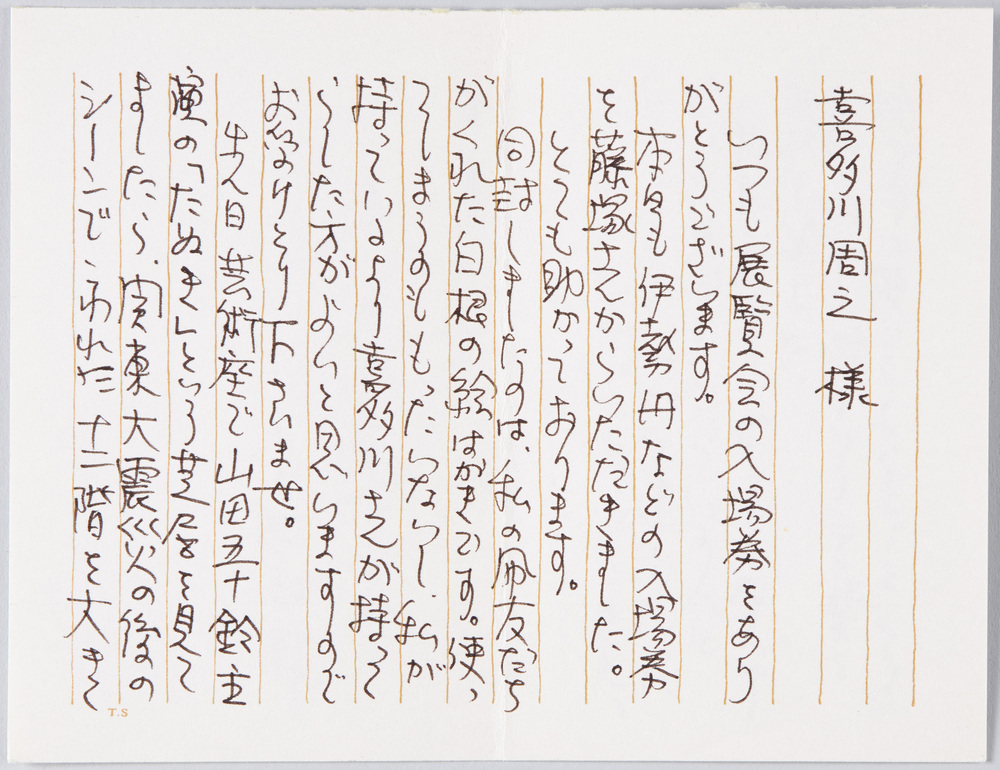 喜多川周之 様
いつも展覧会の入場券をあり
がとうございます。
本日も伊勢丹などの入場券
を藤塚さんからいただきました。
とても助かっております。
同封しましたのは、私の友だち
がくれた白根の絵はがきです。使っ
てしまうのももったいないし、私が
持っているより喜多川さんが持って
らした方がよいと思いますので
お受けとり下さいませ。
先日芸術座で山田五十鈴主
演の「たぬき」という芝居を見て
ましたら、関東大震災の後の
シーンで、われた十二階を大きく
T.S